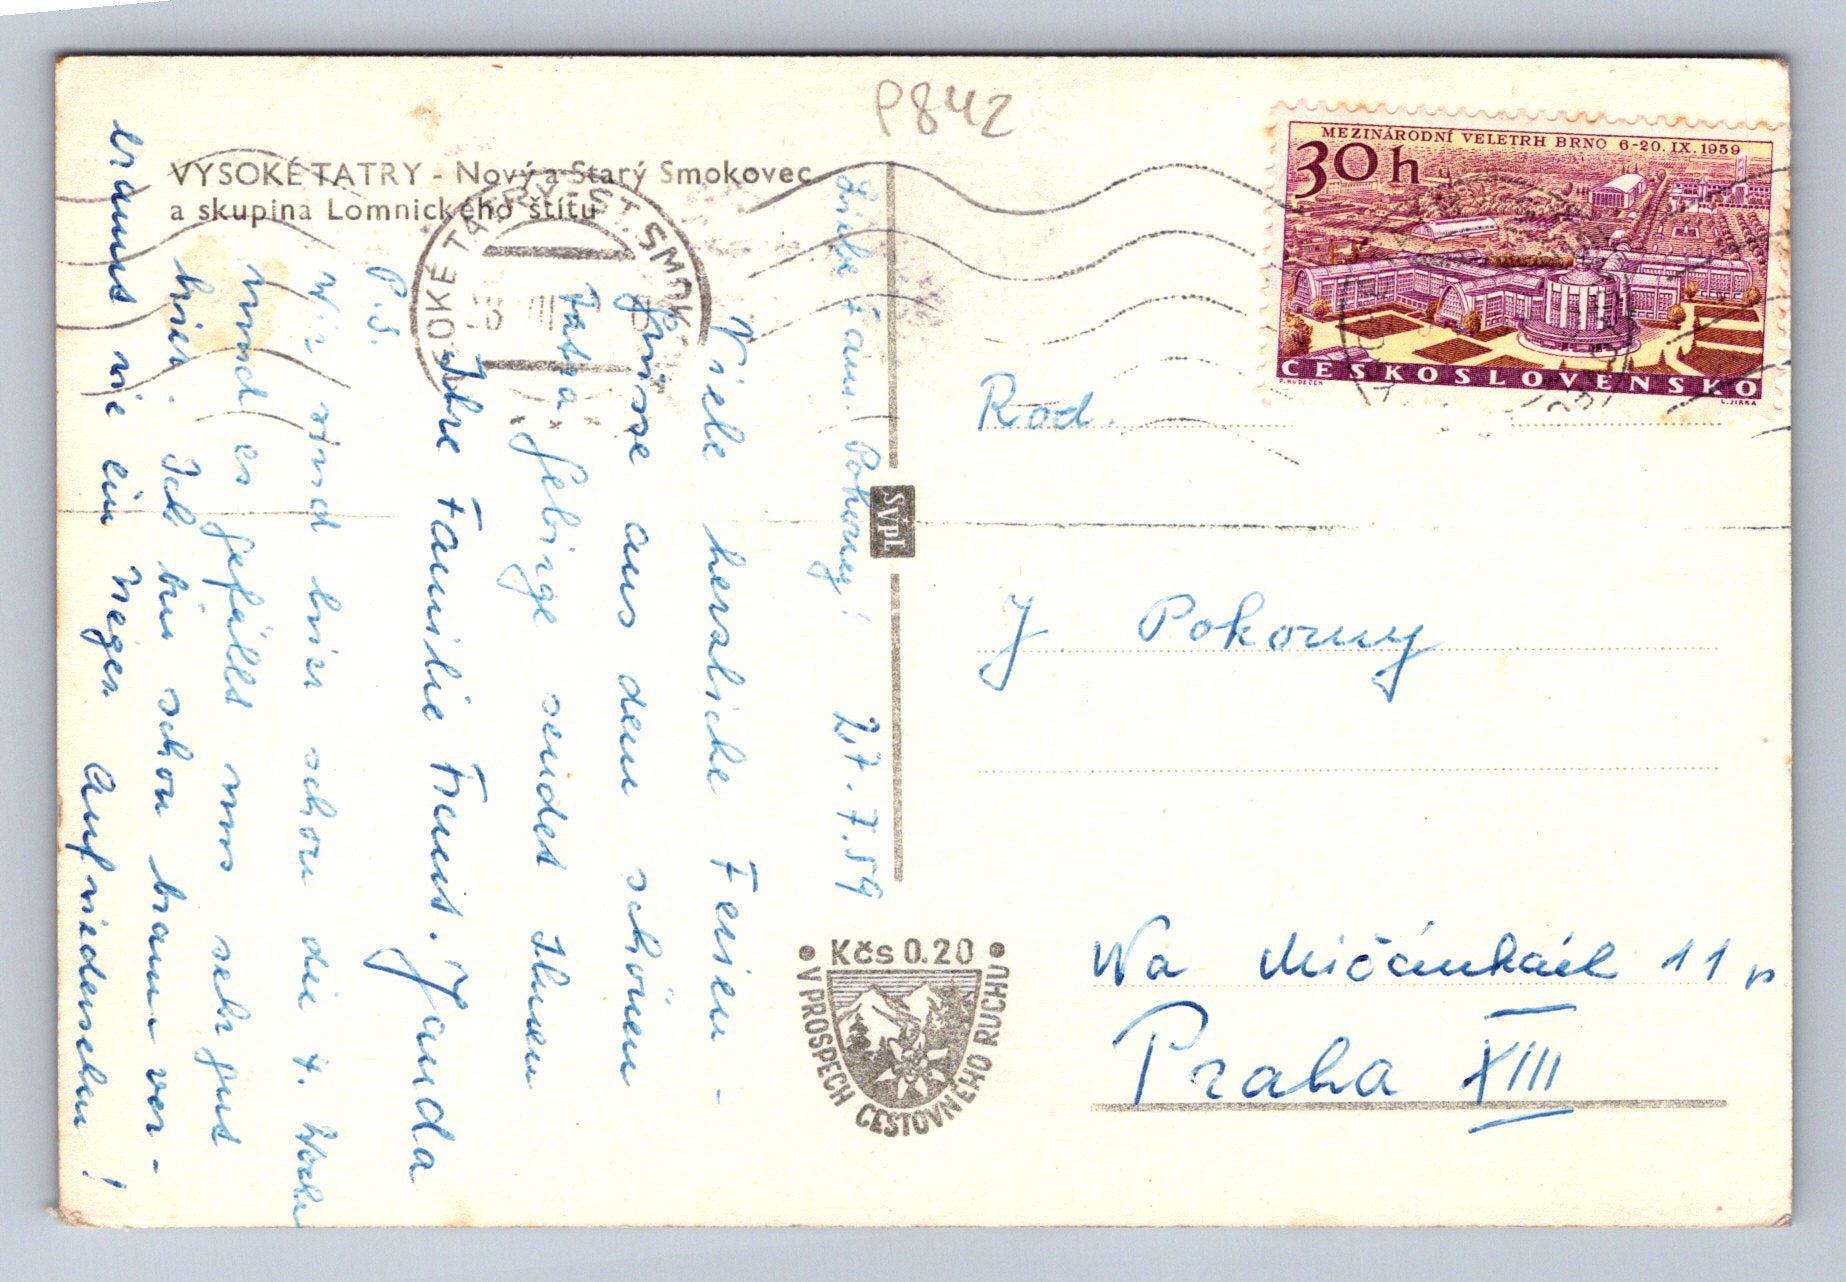 P842
VYSOKÉ TATRY - Nový a Starý Smokovec
a skupina Lomnického štítu
MEZINÁRODNÍ VELETRH BRNO 6-20. IX. 1959
30h
ČESKOSLOVENSKO
F. HUDEČEK
L. JIRKA
VYSOKÉ TATRY - ST. SMOK
Liebe Fam. Pokorny! 27.7.59
Viele herzliche Ferien-
grüsse aus dem schönen
Tatra gebirge sendet Ihnen
Ihre Familie Janda
P.S.
Wir sind hier schon die 4. Woche
unnd es gefällt uns sehr gut
hier. Ich bin schon braun ver-
brannt wie ein Neger. Auf wiedersehn!
SVPL
Kčs 0.20
V PROSPĚCH CESTOVNÉHO RUCHU
Rod.
J Pokorny
Na Mičánkách 11
Praha XIII